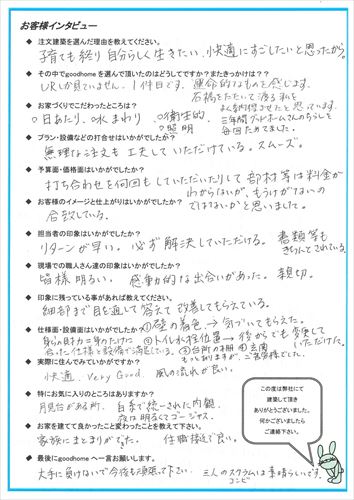 お客様インタビュー
◆ 注文建築を選んだ理由を教えてください。
子育ても終り自分らしく生きたい、快適にすごしたいと思ったから。
◆ その中でgoodhomeを選んで頂いたのはどうしてですか？またきっかけは？？
URLしか見ていません。1件目です。運命的なものを感じます。
石橋をたたいて渡る私を
◆ お家づくりでこだわったところは？
三年間グッドホームさんのちらしを
毎回ためてました。
○日あたり、○水まわり ○衛生的、
○照明
◆ プラン・設備などの打合せはいかがでしたか？
無理な注文も工夫していただけている。スムーズ。
◆ 予算面・価格面はいかがでしたか？
打ち合わせを何回もしていただいたりして部材等は料金が
わからないが、もうけがないの
ではないかと思いました。
◆ お客様のイメージと仕上がりはいかがでしたか？
合致している。
◆ 担当者の印象はいかがでしたか？
リターンが早い。必ず解決していただける。書類等も
きちんとされている。
◆ 現場での職人さん達の印象はいかがでしたか？
皆様明るい。感動的な出合いがあった。親切。
◆ 印象に残っている事があれば教えてください。
細部まで目を通して答えて改善してもらえている。
◆ 仕様面・設備面はいかがでしたか？
①壁の着色→気づいてもらえた。
②トイレ水栓位置→後からでも変更して
いただけた。
③台所の棚 ④玄関
◆ 実際に住んでみていかがですか？
快適、Very Good 風の流れが良い。
◆ 特にお気に入りのところはありますか？
月見台がある所、白系で統一された内観
夜は明るくてゴージャス。
◆ お家を建てて良かったこと変わったことを教えて下さい。
家族にまとまりがでた。仕職接近で良い。
◆ 最後にgoodhomeへ一言お願いします。
大手に負けないで今後も頑張って下さい。三人のスクラムは素晴らしいです。
コンビ
この度は弊社にて
建築して頂き
ありがとうございました。
何かございましたら
ご連絡下さい。